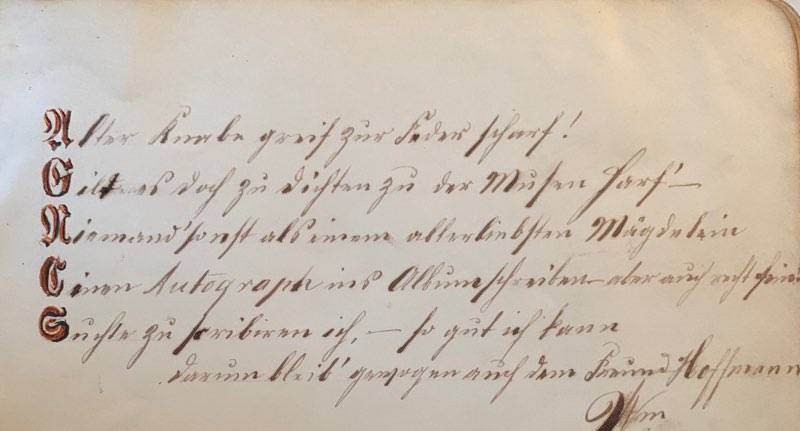 Alter Knabe greif zur Feder scharf!
Gilt es doch zu dichten zu der Musen Harf' —
Niemand' sonst als einem allerliebsten Mägdelein
Einen Autograph ins Album schreiben — aber auch recht fein.
Suchte zu scribiren ich, — so gut ich kann
Darum bleib' gewogen auch dem Freund Hoffmann
Wm